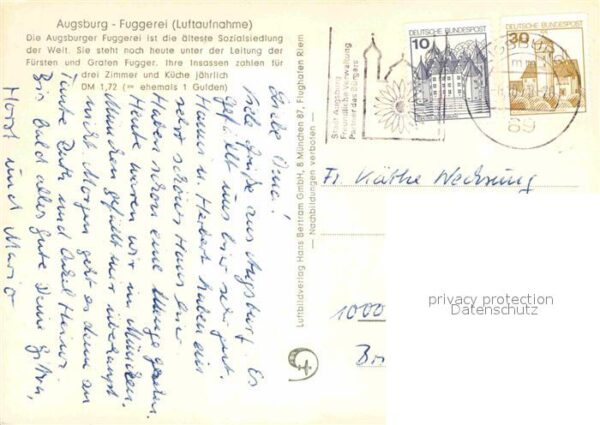 Augsburg - Fuggerei (Luftaufnahme)
Die Augsburger Fuggerei ist die älteste Sozialsiedlung
der Welt. Sie steht noch heute unter der Leitung der
Fürsten und Grafen Fugger. Ihre Insassen zahlen für
drei Zimmer und Küche jährlich
DM 1,72 (= ehemals 1 Gulden)
Liebe Oma!
Viele Grüße aus Augsburg. Es
gefällt uns hier sehr gut.
Hanni u. Herbert haben ein
sehr schönes Haus hier.
Haben schon eine Menge gesehen.
Heute waren wir in München.
München gefällt mir überhaupt
nicht. Morgen geht es dann zu
Tante Ruth und Onkel Heiner.
Bis bald alles gute Deine
Horst und Mario
Luftbildverlag Hans Bertram GmbH, 8 München 87, Flughafen Riem
— Nachbildungen verboten —
Stadt Augsburg
Freundliche Verwaltung
Partner des Bürgers
10
DEUTSCHE BUNDESPOST
30
DEUTSCHE BUNDESPOST
AUGSBURG
89
Fr. Käthe
1000
privacy protection
Datenschutz